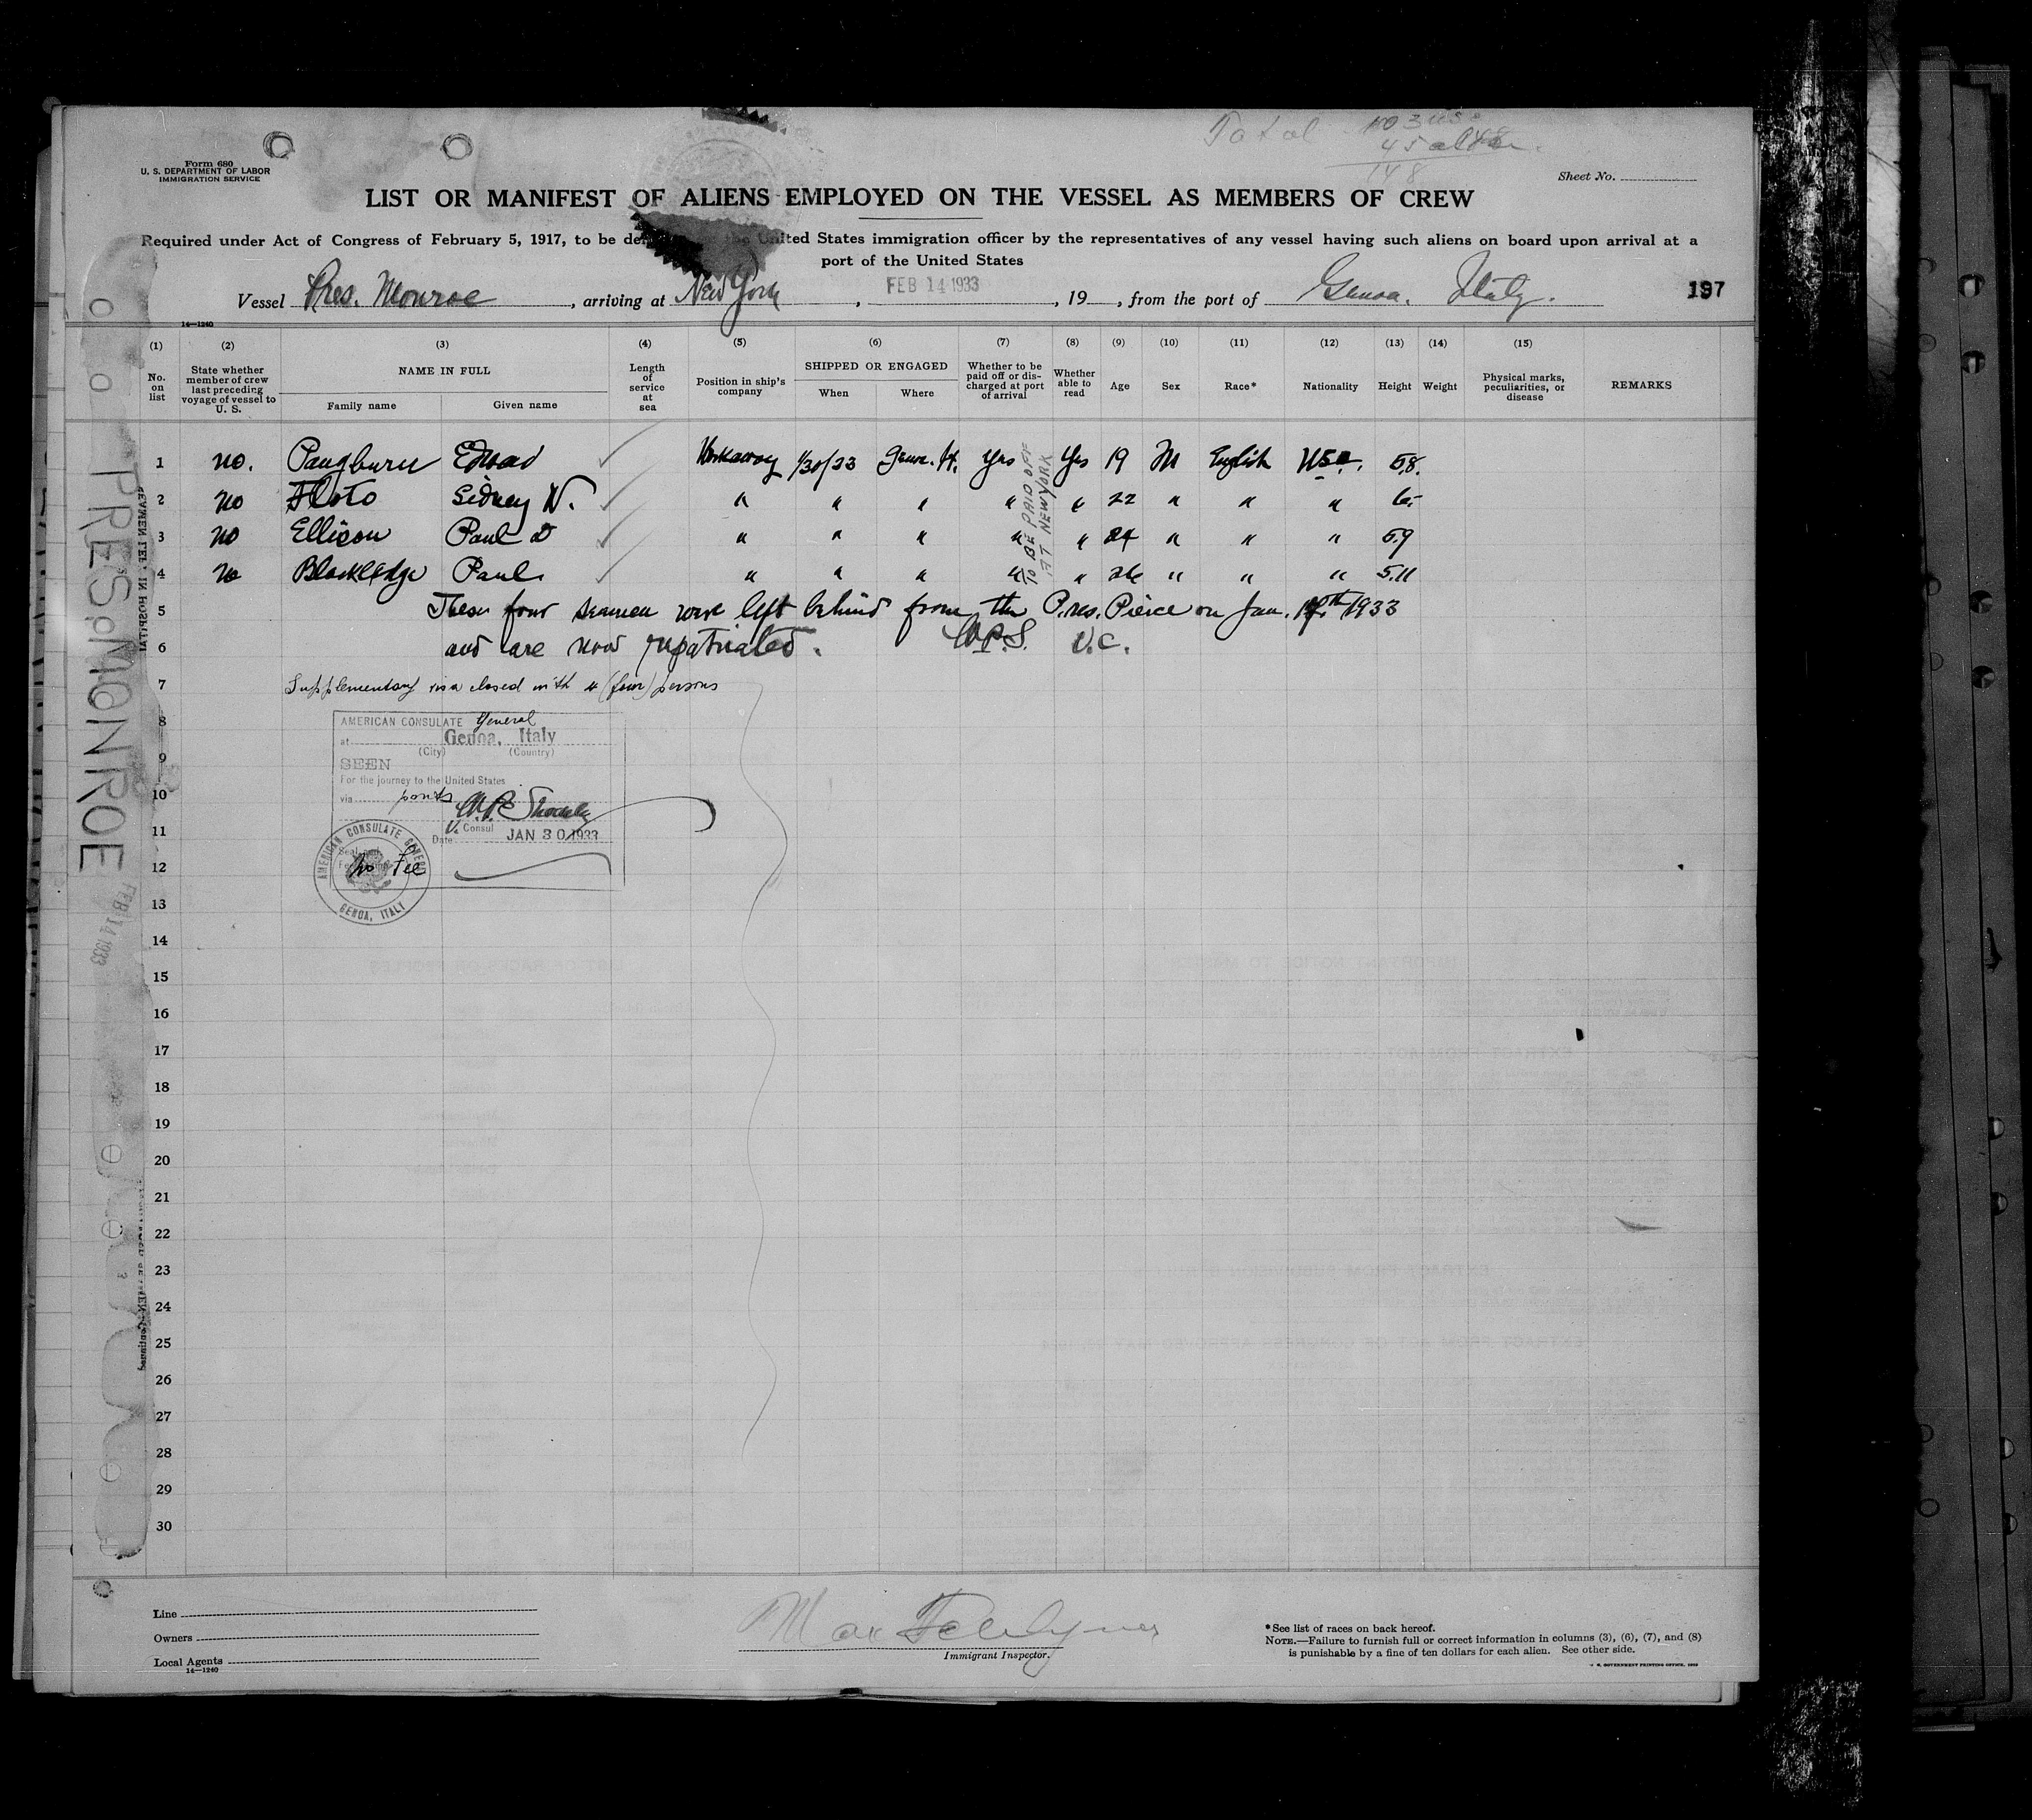 Total 103 us
45 alien
148
Form 680
U. S. DEPARTMENT OF LABOR
IMMIGRATION SERVICE
Sheet No.
LIST OR MANIFEST OF ALIENS EMPLOYED ON THE VESSEL AS MEMBERS OF CREW
Required under Act of Congress of February 5, 1917, to be United States immigration officer by the representatives of any vessel having such aliens on board upon arrival at a
port of the United States
Vessel Pres. Monroe, arriving at New York, FEB 14 1933, 19, from the port of Genoa. Italy. 197
14—1240
(1) (2) (3) (4) (5) (6) (7) (8) (9) (10) (11) (12) (13) (14) (15)
No. on list State whether member of crew last preceding voyage of vessel to U. S. NAME IN FULL Length of service at sea Position in ship's company SHIPPED OR ENGAGED Whether to be paid off or discharged at port of arrival Whether able to read Age Sex Race* Nationality Height Weight Physical marks, peculiarities, or disease REMARKS
Family name Given name When Where
1 no. Pangburn Edwad Workaway 1/30/33 Yes Yes 19 M English USA. 5.8.
2 no Floto Sidney W. " " " " " 22 " " " 6-
3 no Ellison Paul D " " " " " 24 " " " 5.9
4 no Blackledge Paul " " " " " 26 " " " 5.11
TO BE PAID OFF
AT NEW YORK
5 These four seamen were left behind from the Pres. Pierce on Jan. 1933
6 and are now repatriated. W.P.S. V.C.
7 Supplementary visa closed with 4 (four) persons
8 AMERICAN CONSULATE General
at Genoa, Italy
(City) (Country)
9 SEEN
For the journey to the United States
10 via ports
11 V. Consul
Date JAN 30 1933
12 No Fee
AMERICAN CONSULATE GENERAL
GENOA, ITALY
13
14
15
16
17
18
19
20
21
22
23
24
25
26
27
28
29
30
PRES. MONROE
FEB 14 1933
SEAMEN LEFT IN HOSPITAL
Line
Owners
Local Agents
14—1240
Immigrant Inspector.
*See list of races on back hereof.
NOTE.—Failure to furnish full or correct information in columns (3), (6), (7), and (8)
is punishable by a fine of ten dollars for each alien. See other side.